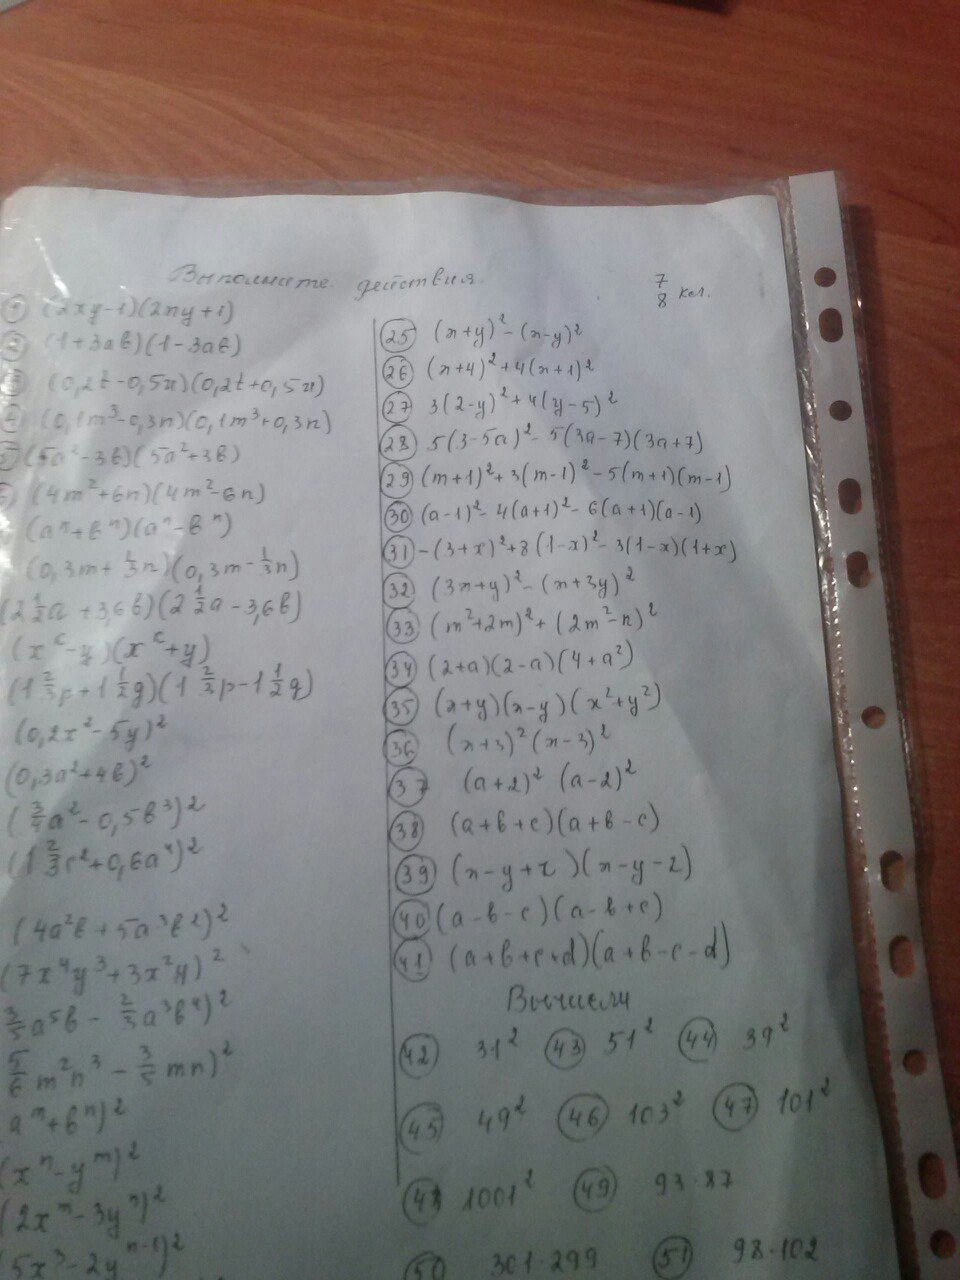 Выполните действия.
7/8 кл.
① (2xy-1)(2xy+1)
② (1+3ab)(1-3ab)
③ (0,2t-0,5x)(0,2t+0,5x)
④ (0,1m³-0,3n)(0,1m³+0,3n)
(5a²-3b)(5a²+3b)
(4m²+6n)(4m²-6n)
(aⁿ+bⁿ)(aⁿ-bⁿ)
(0,3m+1/3n)(0,3m-1/3n)
(2 1/2a+3,6b)(2 1/2a-3,6b)
(x^c-y)(x^c+y)
(1 2/3p+1 1/2q)(1 2/3p-1 1/2q)
(0,2x²-5y)²
(0,3a²+4b)²
(3/4a²-0,5b³)²
(1 2/3c²+0,6a⁴)²
(4a²b+5a³b²)²
(7x⁴y³+3x²y)²
3/5a⁵b-2/3a³b⁴)²
5/6m²n³-3/5mn)²
a^m+bⁿ)²
(xⁿ-y^m)²
(2x^m-3yⁿ)²
(5x³-2y^(n-1))²
㉕ (x+y)²-(x-y)²
㉖ (x+4)²+4(x+1)²
㉗ 3(2-y)²+4(y-5)²
㉘ 5(3-5a)²-5(3a-7)(3a+7)
㉙ (m+1)²+3(m-1)²-5(m+1)(m-1)
㉚ (a-1)²-4(a+1)²-6(a+1)(a-1)
㉛ -(3+x)²+8(1-x)²-3(1-x)(1+x)
㉜ (3x+y)²-(x+3y)²
㉝ (m²+2m)²+(2m²-n)²
㉞ (2+a)(2-a)(4+a²)
㉟ (x+y)(x-y)(x²+y²)
㊱ (x+3)²(x-3)²
㊲ (a+2)² (a-2)²
㊳ (a+b+c)(a+b-c)
㊴ (x-y+z)(x-y-z)
㊵ (a-b-c)(a-b+c)
㊶ (a+b+c+d)(a+b-c-d)
Вычисли
㊷ 31² ㊸ 51² ㊹ 39²
㊺ 49² ㊻ 103² ㊼ 101²
㊽ 1001² ㊾ 93·87
㊿ 301·299 (51) 98·102